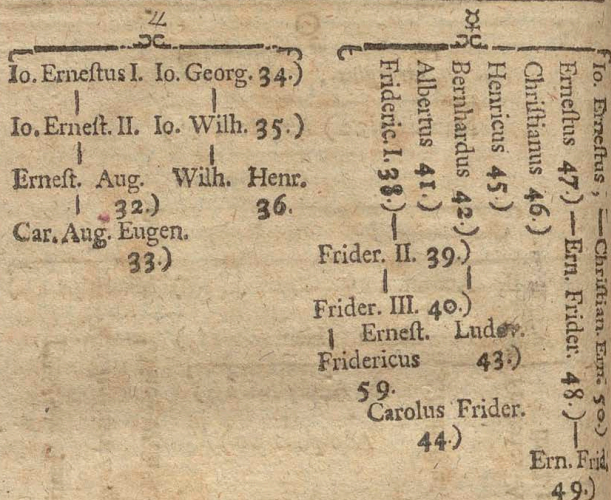 Io. Erneſtus I. Io. Georg. 34.)
Io. Erneſt. II. Io. Wilh. 35.)
Erneſt. Aug. Wilh. Henr.
32.) 36.
Car. Aug. Eugen.
33.)
Frideric. I. 38.)
Albertus 41.)
Bernhardus 42.)
Henricus 45.)
Chriſtianus 46.)
Erneſtus 47.) — Ern. Frider. 48.) —
Io. Erneſtus, — Chriſtian. Ern. 50.)
Frider. II. 39.)
Frider. III. 40.)
Erneſt. Ludov.
Fridericus 43.)
59.
Carolus Frider.
44.)
Ern. Frid.
49.)